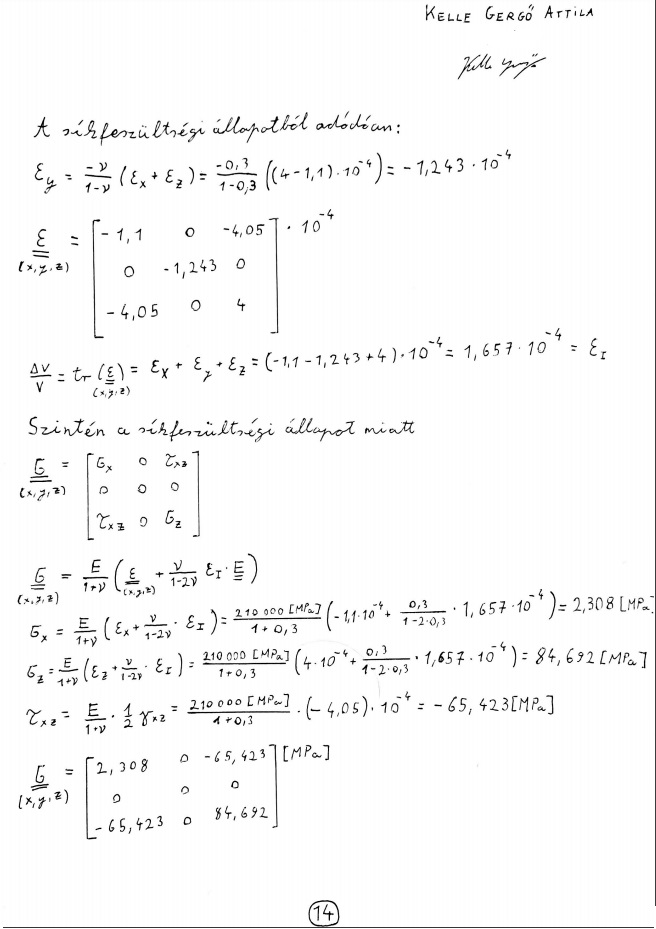 KELLE GERGŐ ATTILA
Kelle Gergő
A síkfeszültségi állapotból adódóan:
ε_y = -ν/(1-ν) (ε_x + ε_z) = -0,3/(1-0,3) ((4-1,1)·10^-4) = -1,243·10^-4
ε (x,y,z) = [ -1,1 0 -4,05
0 -1,243 0
-4,05 0 4 ] · 10^-4
ΔV/V = tr(ε) (x,y,z) = ε_x + ε_y + ε_z = (-1,1-1,243+4)·10^-4 = 1,657·10^-4 = ε_I
Szintén a síkfeszültségi állapot miatt
σ (x,y,z) = [ σ_x 0 τ_xz
0 0 0
τ_xz 0 σ_z ]
σ (x,y,z) = E/(1+ν) (ε (x,y,z) + ν/(1-2ν) ε_I · E)
σ_x = E/(1+ν) (ε_x + ν/(1-2ν) · ε_I) = 210 000 [MPa]/(1+0,3) (-1,1·10^-4 + 0,3/(1-2·0,3) · 1,657·10^-4) = 2,308 [MPa]
σ_z = E/(1+ν) (ε_z + ν/(1-2ν) · ε_I) = 210000 [MPa]/(1+0,3) (4·10^-4 + 0,3/(1-2·0,3) · 1,657·10^-4) = 84,692 [MPa]
τ_xz = E/(1+ν) · 1/2 γ_xz = 210000 [MPa]/(1+0,3) · (-4,05)·10^-4 = -65,423 [MPa]
σ (x,y,z) = [ 2,308 0 -65,423
0 0 0
-65,423 0 84,692 ] [MPa]
14